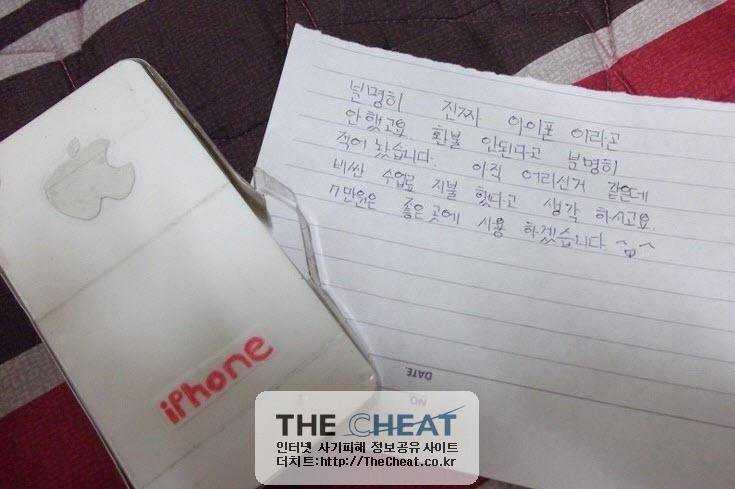 분명히 진짜 아이폰 이라곤
안했고요. 환불 안된다고 분명히
적어 놨습니다. 아직 어리신거 같은데
비싼 수업료 지불 했다고 생각 하시고요.
7만원은 좋은곳에 사용 하겠습니다 ^_^
iPhone
DATE
NO
THE CHEAT
인터넷 사기피해 정보공유 사이트
더치트:http://TheCheat.co.kr